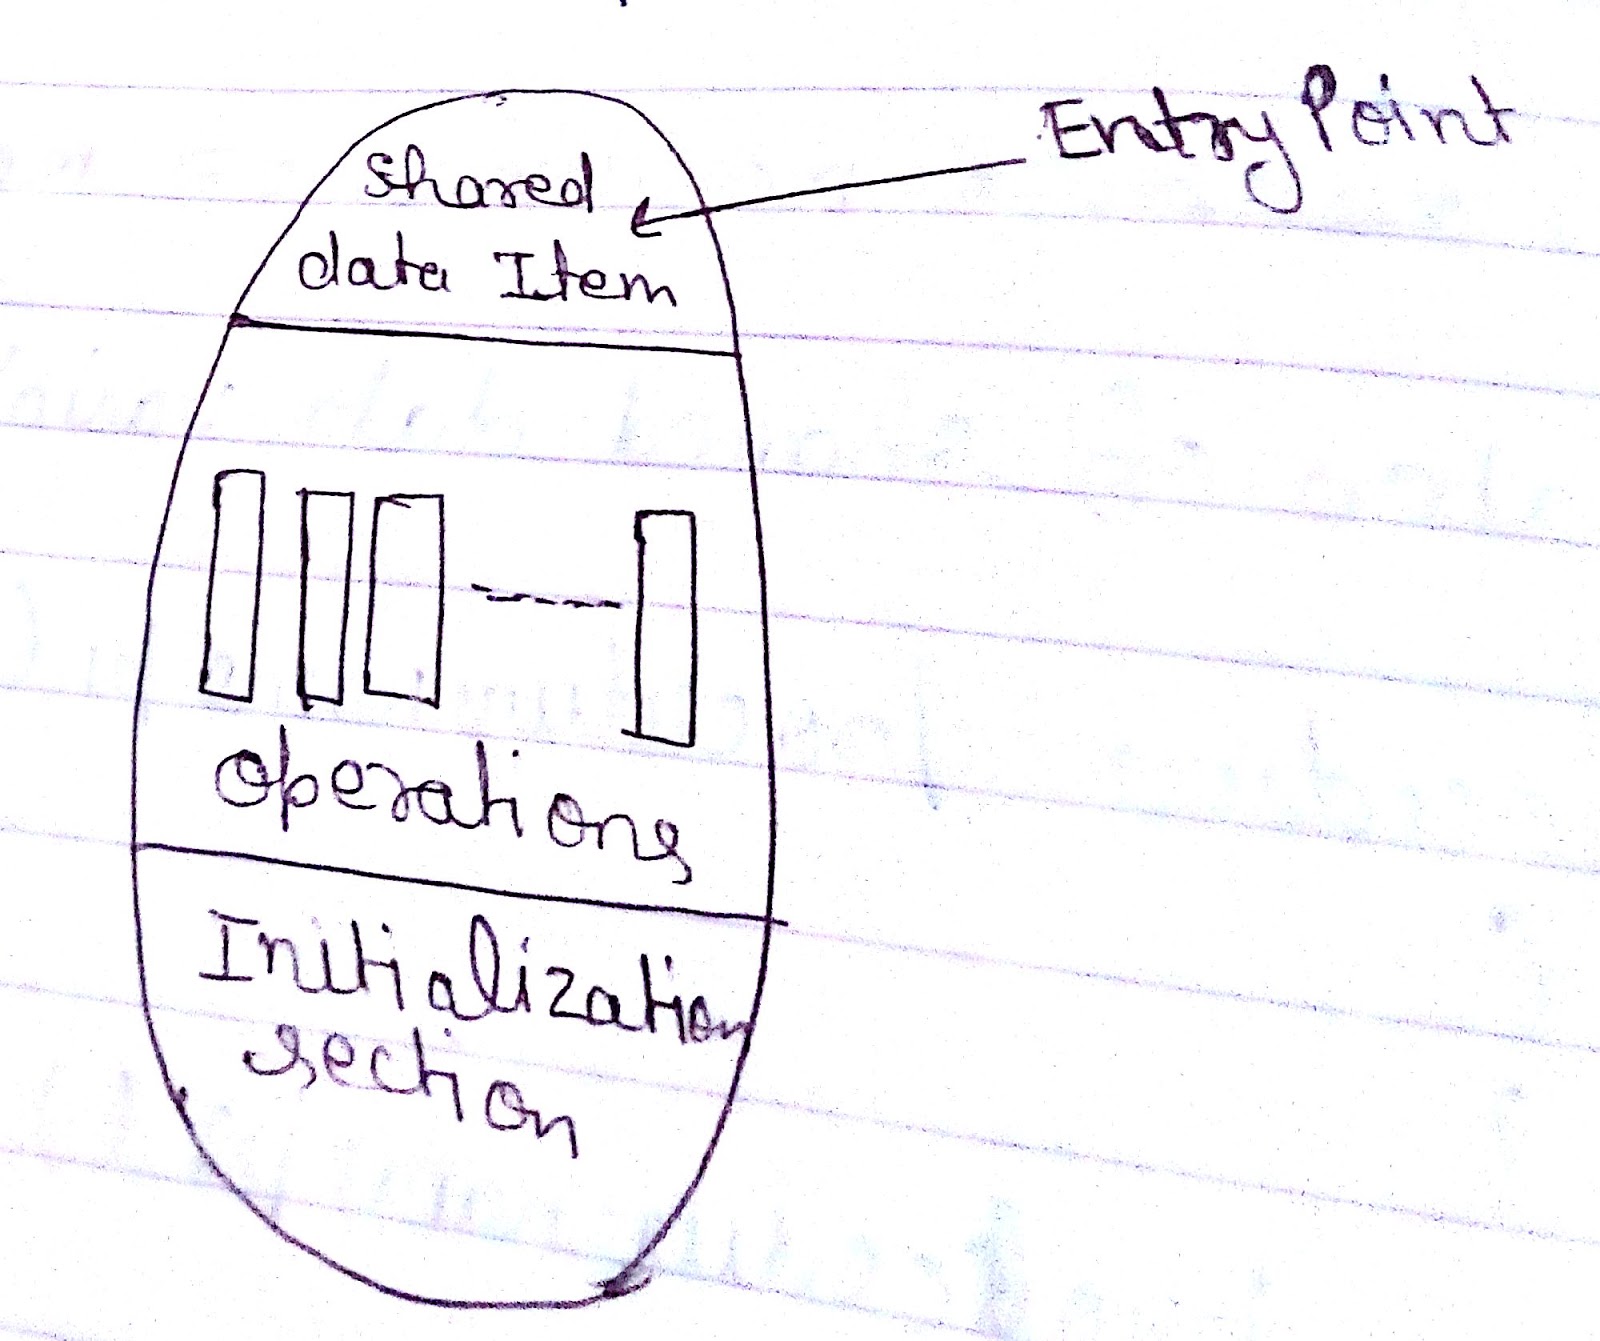 Entry Point
Shared
data Item
operations
Initialization
section